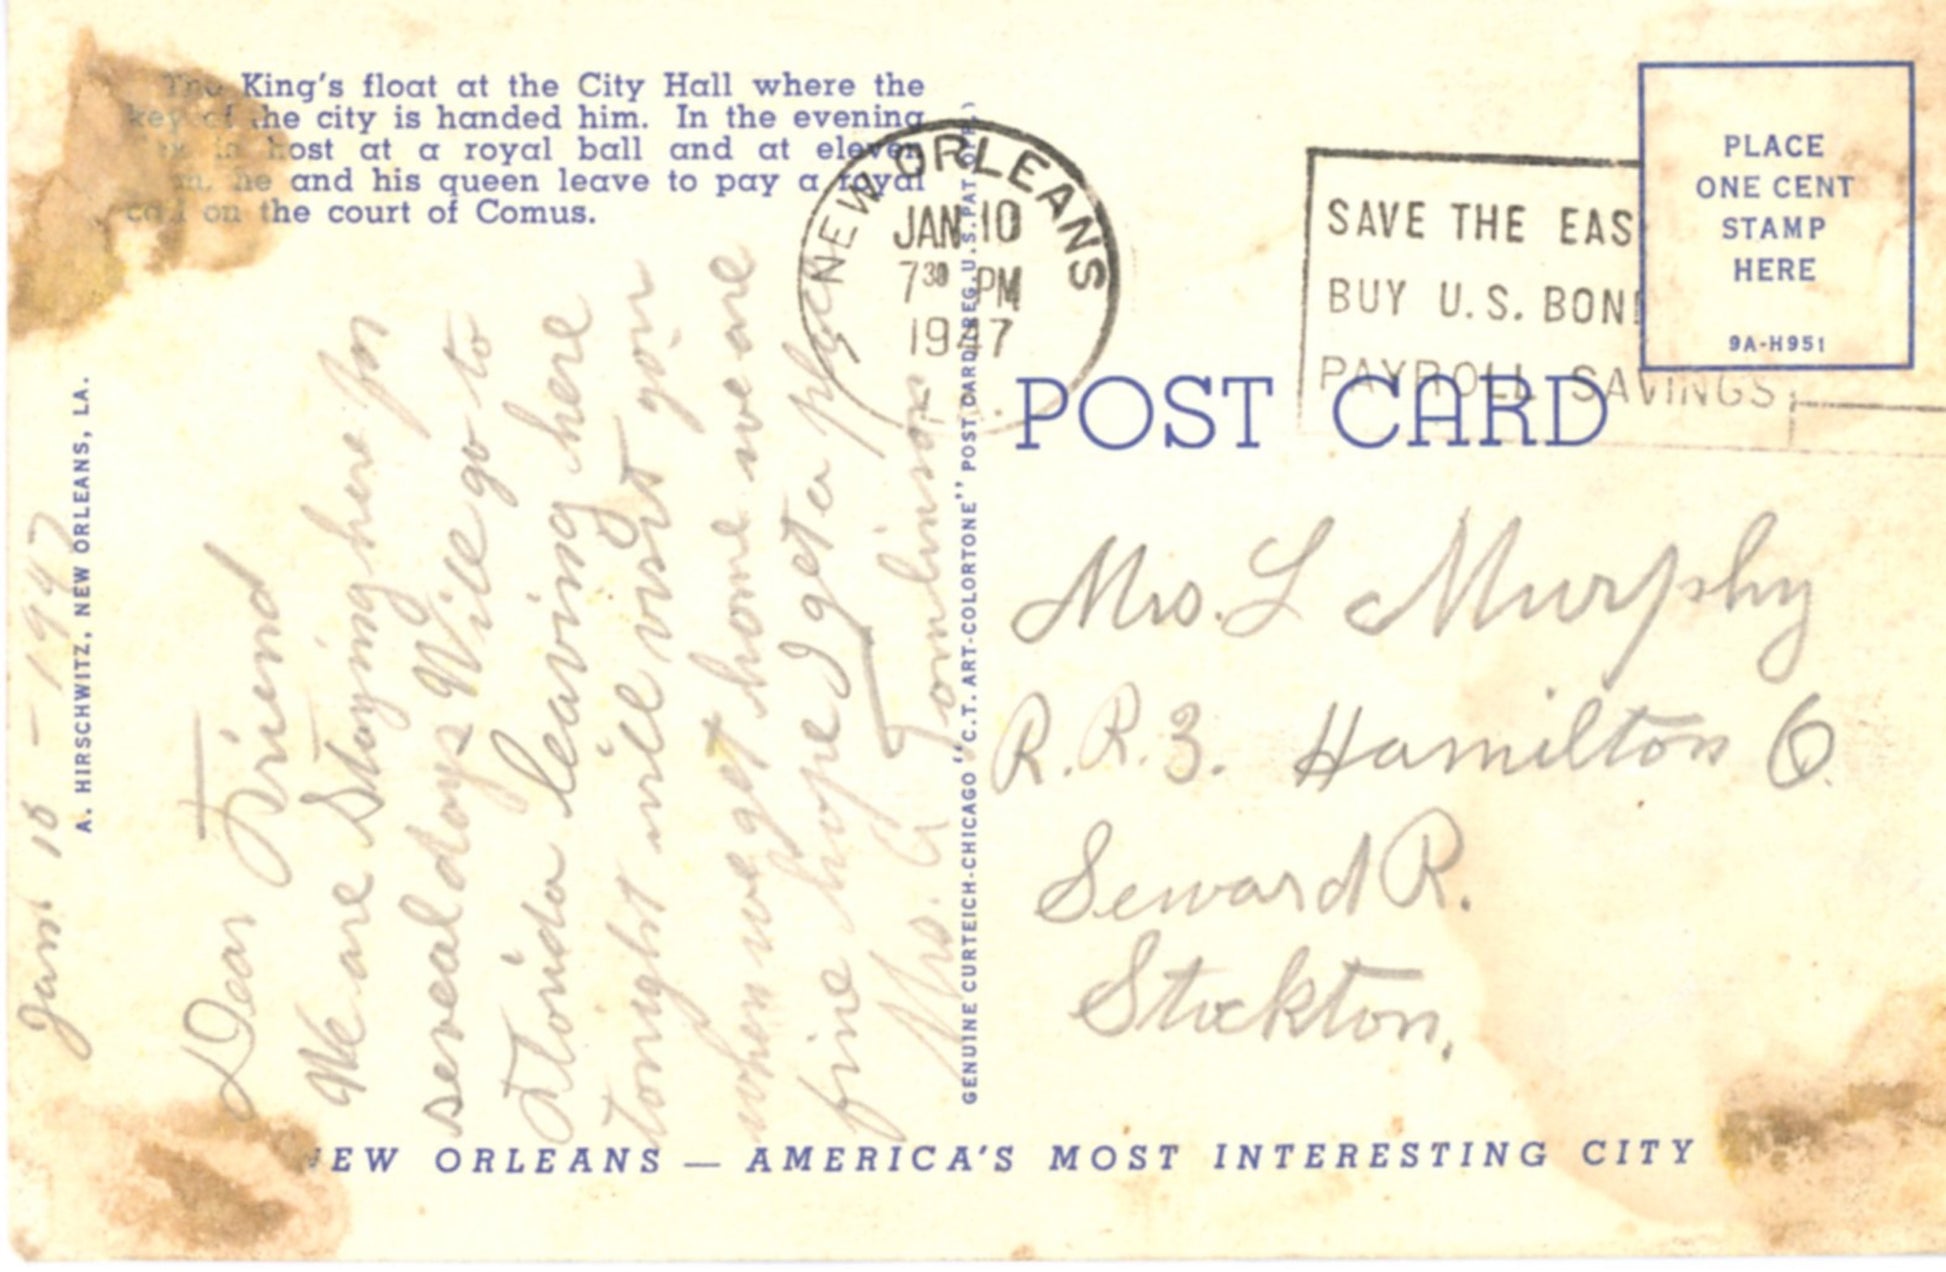 The King's float at the City Hall where the
key of the city is handed him. In the evening
Rex is host at a royal ball and at eleven
he and his queen leave to pay a royal
call on the court of Comus.
NEW ORLEANS
JAN 10
7 30 PM
1947
SAVE THE EAS
BUY U.S. BON
PAYROLL SAVINGS
PLACE
ONE CENT
STAMP
HERE
9A-H951
POST CARD
A. HIRSCHWITZ, NEW ORLEANS, LA.
Jan 10 - 1947
Dear Friend
We are Staying here for
several days Will go to
Florida leaving here
tonight will visit you
when we get home we are
fine hope I get a
Mrs. G Tomlinson
GENUINE CURTEICH-CHICAGO "C.T. ART-COLORTONE" POST CARD (REG. U.S. PAT. OFF.)
Mrs. L Murphy
R.R.3. Hamilton O.
Seward R.
Stockton.
NEW ORLEANS — AMERICA'S MOST INTERESTING CITY